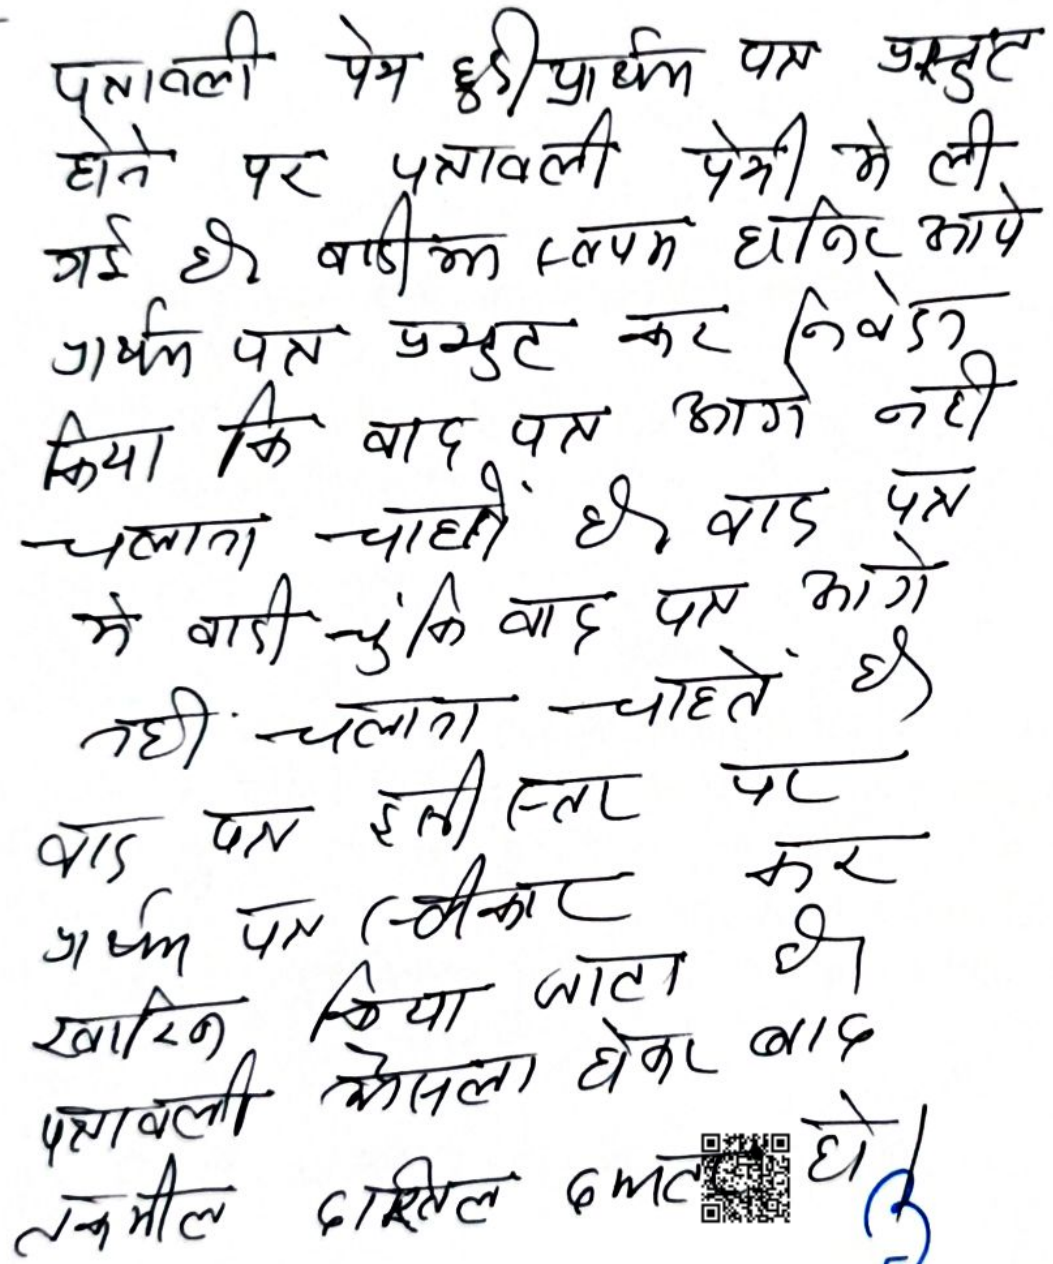 पत्रावली पेश हुई प्रार्थना पत्र प्रस्तुत
होने पर पत्रावली पेशी मे ली
गई है। वादीगण स्वयम हाजिर आये
प्रार्थना पत्र प्रस्तुत कर निवेदन
किया कि वाद पत्र आगे नही
चलाना चाहते है। वाद पत्र
मे वादी चुंकि वाद पत्र आगे
नही चलाना चाहतें है
वाद पत्र इसी स्तर पर
प्रार्थना पत्र स्वीकार कर
खारिज किया जाता है।
पत्रावली फैसला होकर बाद
तकमील दाखिल दफ्तर हो।